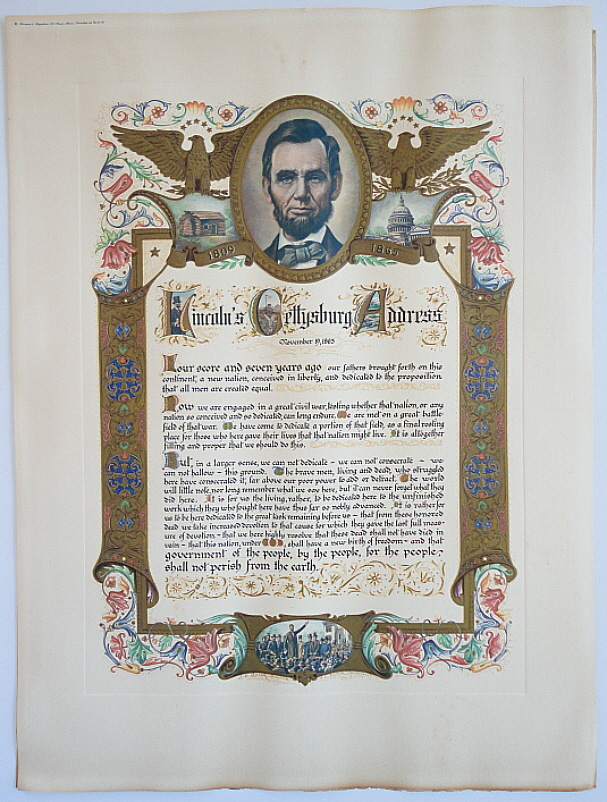 1809
1865
Lincoln's Gettysburg Address
November 19, 1863
Four score and seven years ago our fathers brought forth on this
continent, a new nation, conceived in liberty, and dedicated to the proposition
that all men are created equal.
Now we are engaged in a great civil war, testing whether that nation, or any
nation so conceived and so dedicated, can long endure. We are met on a great battle
field of that war. We have come to dedicate a portion of that field, as a final resting
place for those who here gave their lives that that nation might live. It is altogether
fitting and proper that we should do this.
But, in a larger sense, we can not dedicate – we can not consecrate – we
can not hallow – this ground. The brave men, living and dead, who struggled
here have consecrated it, far above our poor power to add or detract. The world
will little note, nor long remember what we say here, but it can never forget what they
did here. It is for us the living, rather, to be dedicated here to the unfinished
work which they who fought here have thus far so nobly advanced. It is rather for
us to be here dedicated to the great task remaining before us – that from these honored
dead we take increased devotion to that cause for which they gave the last full meas-
ure of devotion – that we here highly resolve that these dead shall not have died in
vain – that this nation, under God, shall have a new birth of freedom – and that
government of the people, by the people, for the people,
shall not perish from the earth.